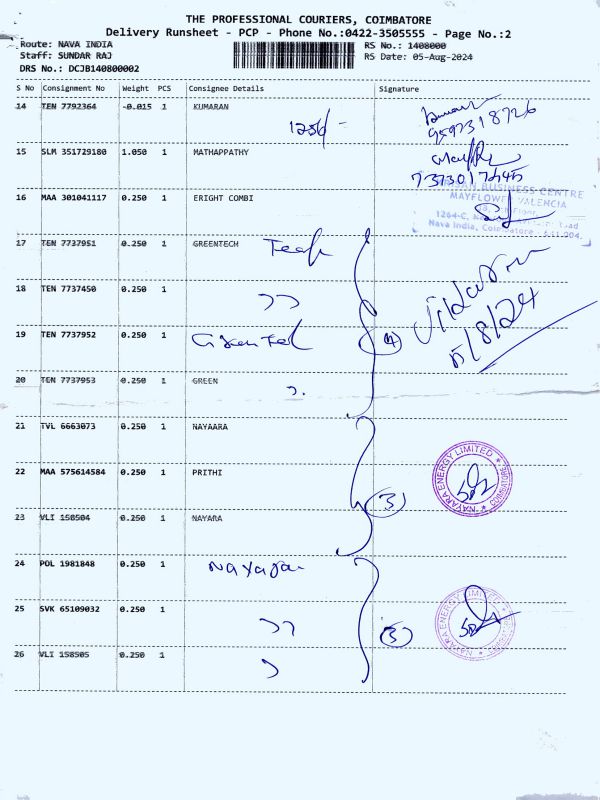 THE PROFESSIONAL COURIERS, COIMBATORE
Delivery Runsheet - PCP - Phone No.:0422-3505555 - Page No.:2
Route: NAVA INDIA
RS No.: 1408000
Staff: SUNDAR RAJ
RS Date: 05-Aug-2024
DRS No.: DCJB140800002
S No Consignment No Weight PCS Consignee Details Signature
14 TEN 7792364 -0.015 1 KUMARAN
9597318726
15 SLM 351729180 1.050 1 MATHAPPATHY
16 MAA 301041117 0.250 1 ERIGHT COMBI
BUSINESS CENTRE
MAYFLOWER VALENCIA
1264-C,
Nava India, Coimbatore - 641 004.
17 TEN 7737951 0.250 1 GREENTECH
18 TEN 7737450 0.250 1
5/8/24
19 TEN 7737952 0.250 1
4
20 TEN 7737953 0.250 1 GREEN
21 TVL 6663073 0.250 1 NAYAARA
22 MAA 575614584 0.250 1 PRITHI
NAYARA ENERGY LIMITED
COIMBATORE
3
23 VLI 158504 0.250 1 NAYARA
24 POL 1981848 0.250 1 Nayara
25 SVK 65109032 0.250 1
NAYARA ENERGY LIMITED
3
26 VLI 158505 0.250 1